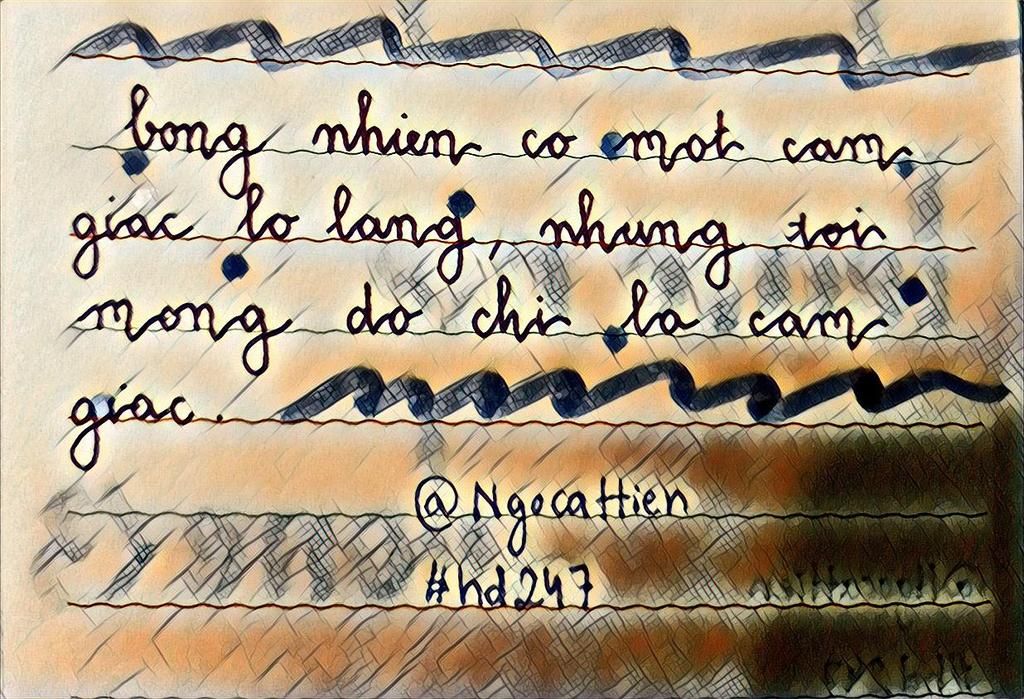 bong nhien co mot cam
giac lo lang, nhung toi
mong do chi la cam
giac.
@NgocaHien
#hd247